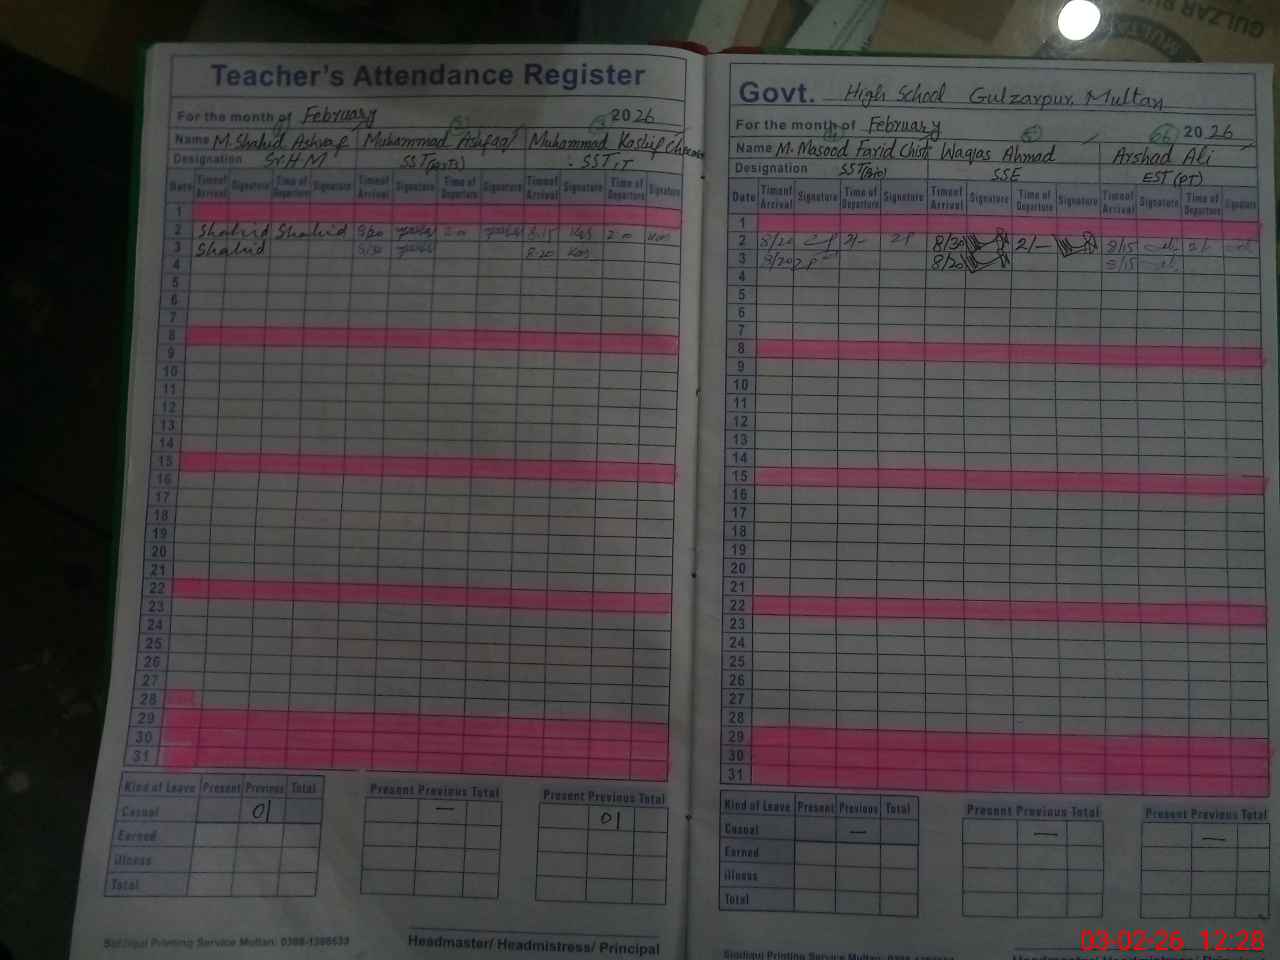 GULZAR
MULTAN
Teacher's Attendance Register
For the month of February 2026
Name M. Shahid Ashraf Muhammad Ashfaq Muhammad Kashif
Designation Sr. H M SST SST, IT
Date Time of Arrival Signature Time of Departure Signature Time of Arrival Signature Time of Departure Signature Time of Arrival Signature Time of Departure Signature
1
2 Shahid Shahid 8:15 Kas 2:0 Kas
3 Shahid 8:20 Kas
4
5
6
7
8
9
10
11
12
13
14
15
16
17
18
19
20
21
22
23
24
25
26
27
28
29
30
31
Kind of Leave Present Previous Total Present Previous Total Present Previous Total
Casual 01 — 01
Earned
illness
Total
Siddiqui Printing Service Multan.
Headmaster/ Headmistress/ Principal
Govt. High School Gulzarpur, Multan
For the month of February 2026
Name M. Masood Farid Chisti Waqas Ahmad Arshad Ali
Designation SST (Bio) SSE EST (PT)
Date Time of Arrival Signature Time of Departure Signature Time of Arrival Signature Time of Departure Signature Time of Arrival Signature Time of Departure Signature
1
2 8/20 2/- 8/30 2/- 8/15 2/-
3 8/20 8/20 8/15
4
5
6
7
8
9
10
11
12
13
14
15
16
17
18
19
20
21
22
23
24
25
26
27
28
29
30
31
Kind of Leave Present Previous Total Present Previous Total Present Previous Total
Casual — — —
Earned
illness
Total
Siddiqui Printing Service Multan.
03-02-26 12:28